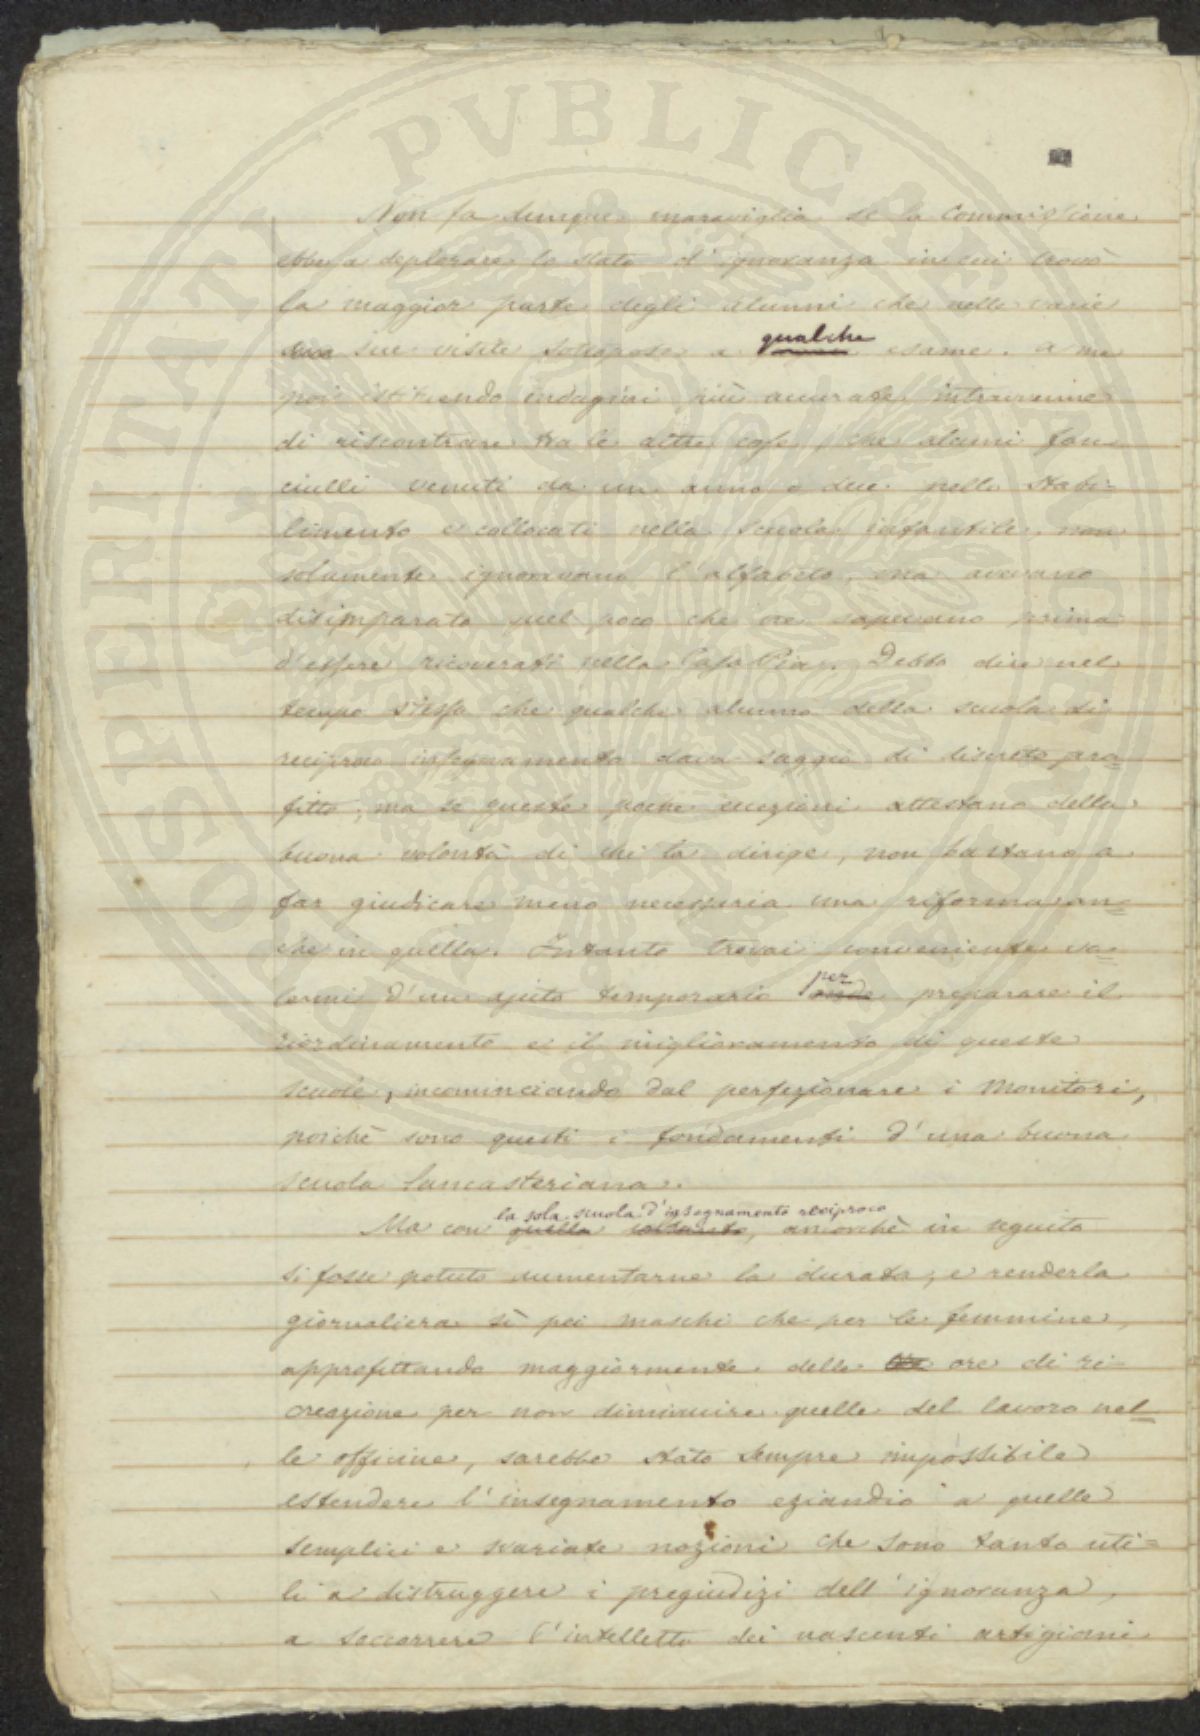 Non fa dunque maraviglia se la Commissione
ebbe a deplorare lo stato d'ignoranza in cui trovò
la maggior parte degli alunni che nelle varie
sue visite sottopose a qualche esame. A me
poi istituendo indagini più accurate intravenne
di riscontrare tra le altre cose, che alcuni fan-
ciulli venuti da un anno o due nello Stabi-
limento e collocati nella scuola infantile, non
solamente ignoravano l'alfabeto, ma avevano
disimparato quel poco che ne sapevano prima
d'essere ricoverati nella Casa Pia. Debbo dire nel
tempo stesso che qualche alunno della scuola di
reciproco insegnamento dava saggio di discreto pro=
fitto; ma se queste poche eccezioni attestano della
buona volontà di chi la dirige, non bastano a
far giudicare meno necessaria una riforma an=
che in quella. Intanto trovai conveniente va=
lermi d'un ajuto temporario per preparare il
riordinamento e il miglioramento di queste
scuole, incominciando dal perfezionare i Monitori,
poichè sono questi i fondamenti d'una buona
scuola Lancasteriana.
la sola scuola d'insegnamento reciproco
Ma con quella soltanto, ancorchè in seguito
si fosse potuto aumentarne la durata, e renderla
giornaliera sì pei maschi che per le femmine,
approfittando maggiormente delle ore di ri-
creazione per non diminuire quelle del lavoro nel=
le officine, sarebbe stato sempre impossibile
estendere l'insegnamento eziandio a quelle
semplici e svariate nozioni che sono tanto uti=
li a distruggere i pregiudizi dell'ignoranza,
a soccorrere l'intelletto dei nascenti artigiani
PVBLICAE
PROSPERITATI